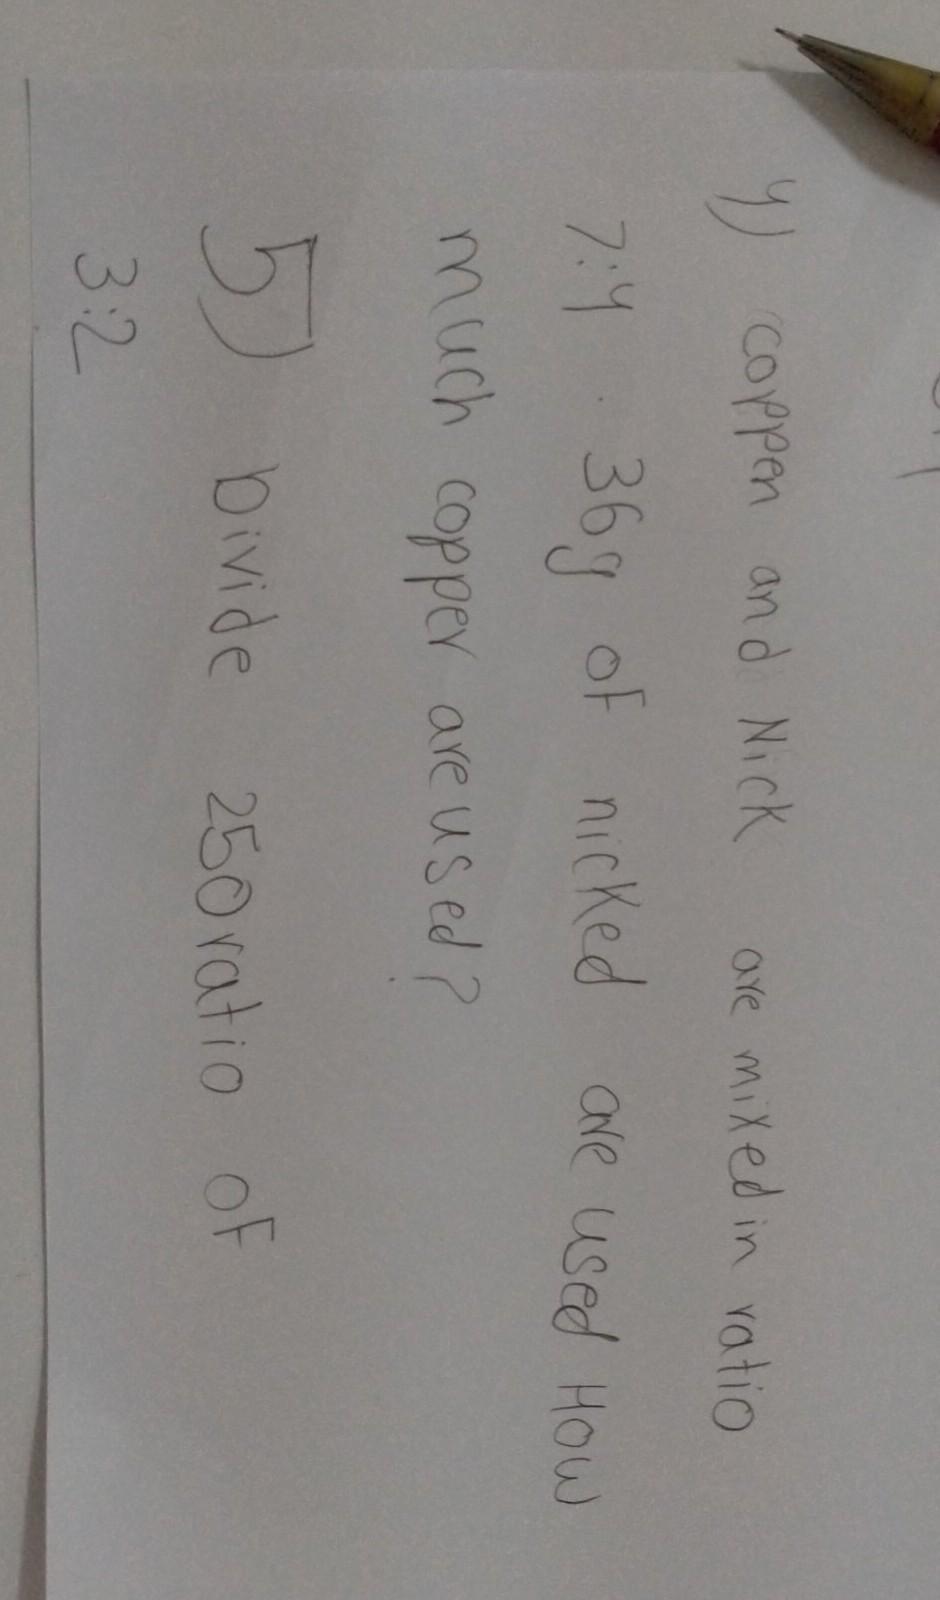 4) coppen and Nick are mixed in ratio
7:4 . 36g of nicked are used How
much copper are used?
5) Divide 250 ratio of
3:2